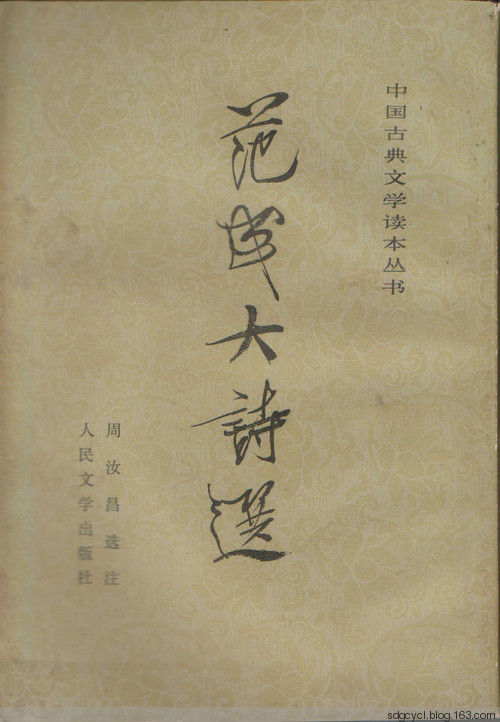 中国古典文学读本丛书
范成大詩選
周汝昌选注
人民文学出版社
sdgcycl.blog.163.com